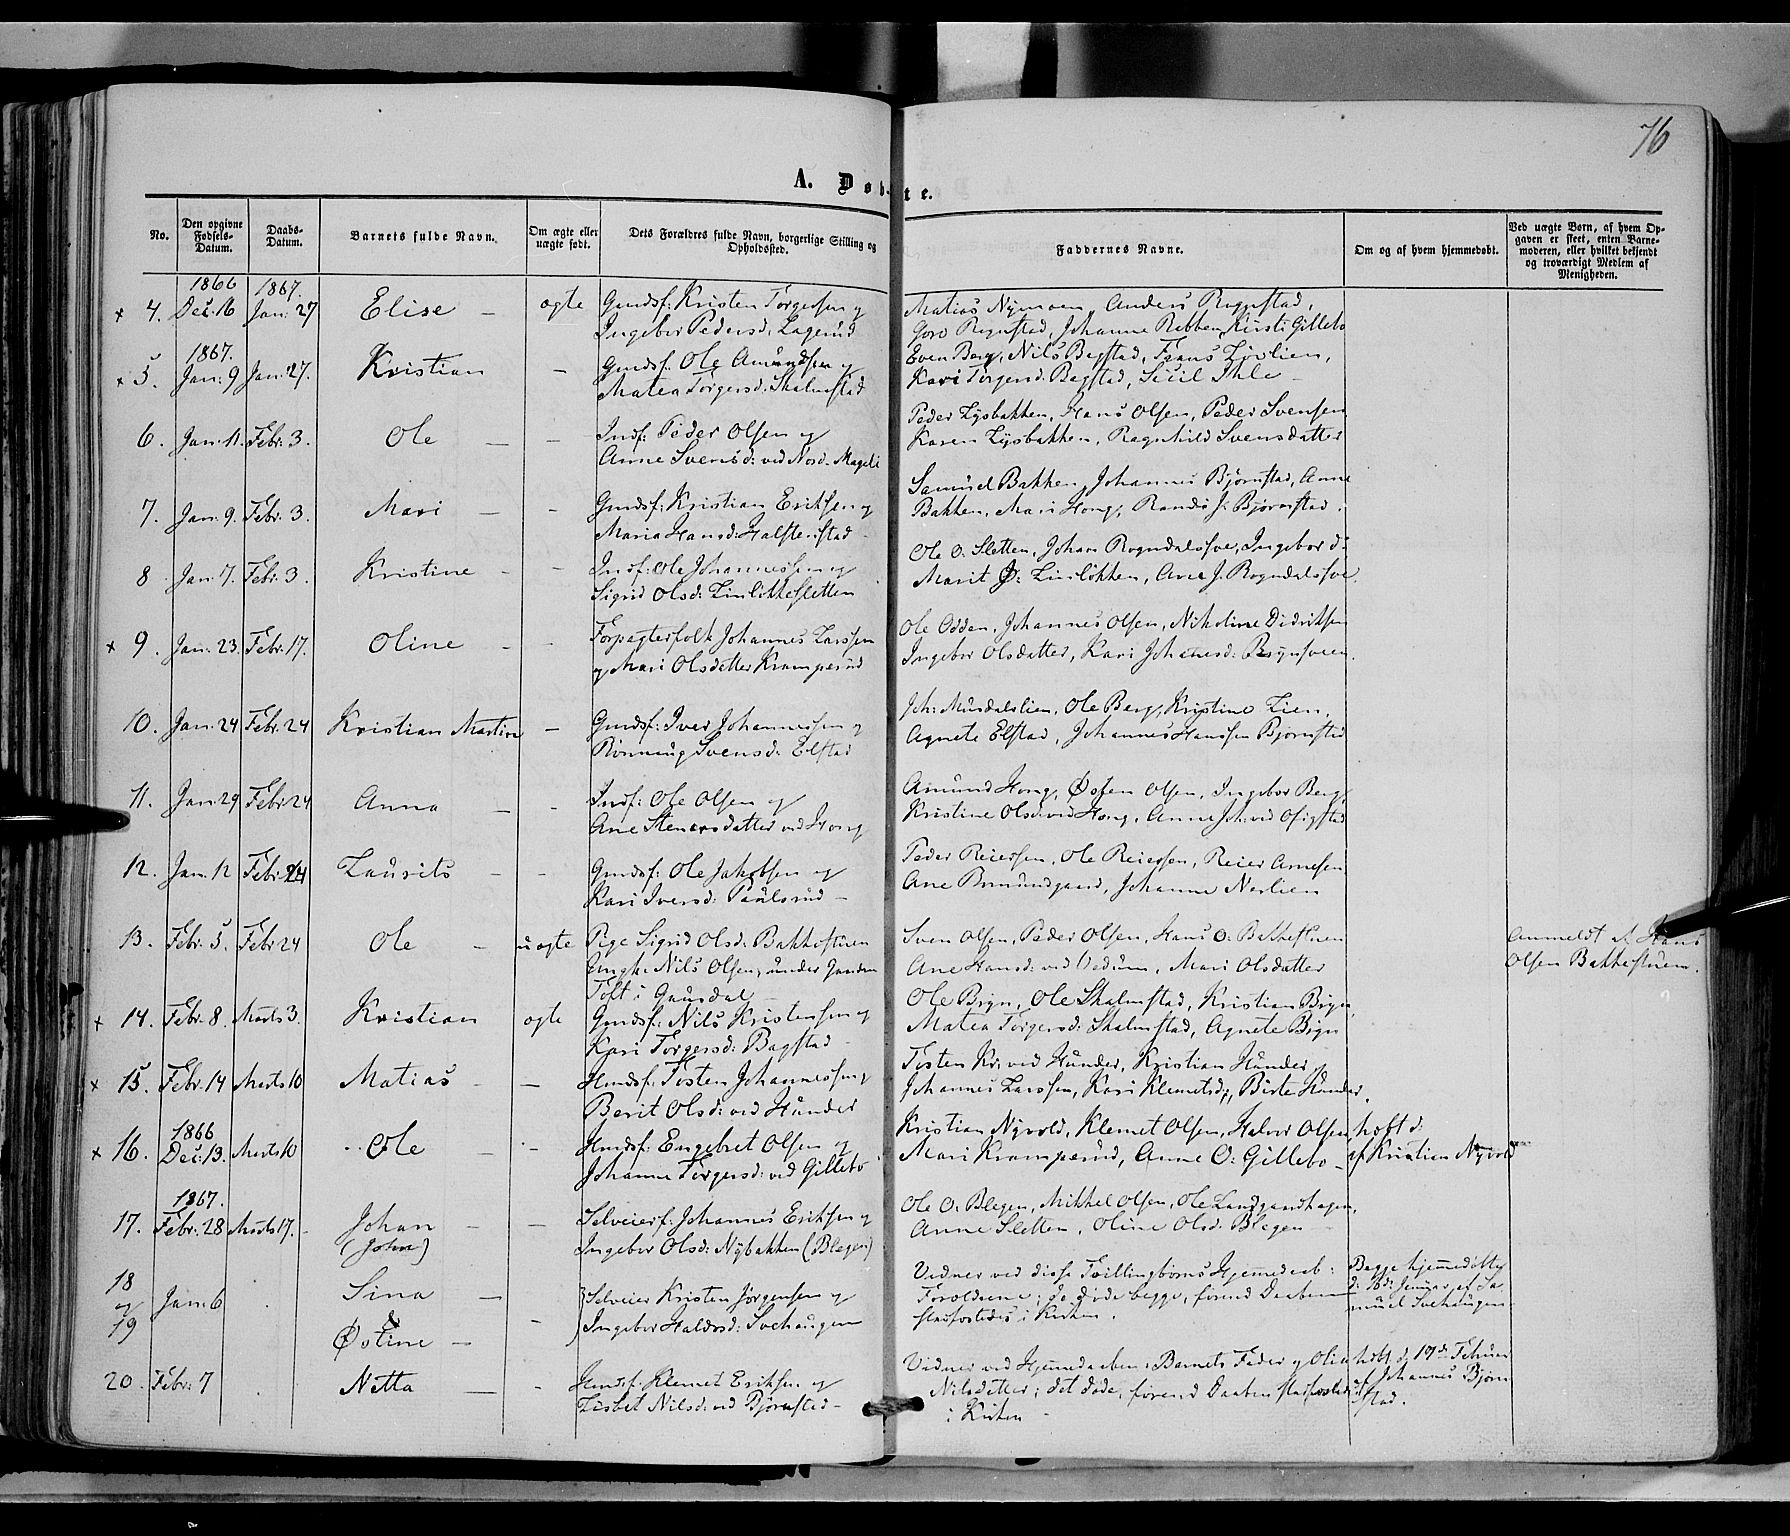 76
A. Døbte.
No.
Den opgivne Fødsels-Datum.
Daabs-Datum.
Barnets fulde Navn.
Om ægte eller uægte født.
Dets Forældres fulde Navn, borgerlige Stilling og Opholdssted.
Faddernes Navne.
Om og af hvem hjemmedøbt.
Ved uægte Børn, af hvem Opgaven er skeet, enten Barnemoderen, eller hvilket bekjendt og troværdigt Medlem af Menigheden.
1866 1867.
× 4. Dec: 16 Jan: 27 Elise – ægte Gmdsf: Kristen Torgersen og Matias Nymoen, Anders Roggstad,
Ingebor Pedersd: Lagerud Johanne Rebben, Kirsti Gillebo
1867.
× 5. Jan: 9 Jan: 27. Kristian – Gmdsf: Ole Amundsen og Even Berg, Nils Bogstad, Frans Lövlien,
Matea Torgersd: Skalmstad Kari Torgersd: Bogstad, Sicil Ihle –
6. Jan: 11. Febr: 3. Ole – – Indf: Peder Olsen og Peder Lysbakken, Hans Olsen, Peder Svensen
Anne Svensd: ved Nord. Mageli Karen Lysbakken, Ragnhild Svensdatter
7. Jan: 9. Febr: 3. Mari – – Gmdsf: Kristian Eriksen og Samuel Bakken, Johannes Bjørnstad, Anne
Maria Hansd: Halstenstad – Bakken, Mari Hong, Randi J. Bjørnstad.
8 Jan: 7. Febr: 3. Kristine – – Indf: Ole Johannessen og Ole O: Sletten, Johan Rogndalssve, Ingebor
Sigrid Olsd: Linlökkesletten Marit Linlökken, Ane J. Rogndalssve.
× 9. Jan: 23. Febr: 17. Oline – – Forpagterfolk Johannes Larssen Ole Odden, Johannes Olsen, Nikoline Didriksen
og Mari Olsdatter Kramperud Ingebor Olsdatter, Kari Johanesd: Brynsveen.
10. Jan: 24 Febr: 24 Kristian Martin – Gmdsf: Iver Johannessen og Ole Berg, Kristine Lien,
Rönnaug Svensd: Elstad Agnete Elstad, Johannes Hanssen Bjørnstad
11. Jan: 29 Febr: 24 Anna – – Indf: Ole Olsen og Amund Hong, Østen Olsen, Ingebor Berg,
Ane Stenersdatter ved Hong Kristine Olsd: ved Hong, Anne Joh: ved Ofigstad
12. Jan: 12 Febr: 24 Laurits – – Gmdsf: Ole Jakobsen og Peder Reiersen, Ole Reiersen, Reier Arnesen
Kari Iversd: Paulsrud – Ane Brundgaard, Johanne Nerlien
13. Febr: 5. Febr: 24 Ole – uægte Pige Sigrid Olsd: Bakkestuen Sven Olsen, Peder Olsen, Hans O: Bakkestuen Anmeldt af Hans
Ungk: Nils Olsen, under Ane Hansd: ved Vedum, Mari Olsdatter Olsen Bakkestuen.
Toft i Gausdal –
× 14. Febr: 8. Marts 3. Kristian ægte Gmdsf: Nils Kristensen og Ole Bryn, Ole Skalmstad, Kristian Bryn,
Kari Torgersd: Bogstad – Matea Torgersd: Skalmstad, Agnete Bryn
× 15. Febr: 14 Marts 10 Matias – – Hmdsf: Tosten Johannessen og Tosten Kr: ved Hunder, Kristian Hunder,
Berit Olsd: ved Hunder Johannes Larssen, Kari Klemetsd:, Birte Hunder.
1866
× 16. Dec: 13. Marts 10 Ole – – Hmdsf: Engebret Olsen og Kristian Nyvold, Klemet Olsen, Halvor Olsen,
Johanne Torgersd: ved Gillebo Mari Kramperud, Anne O: Gillebo – af Kristian Nyvold
1867.
17. Febr: 28 Marts 17. – Johan – – Selveierf: Johannes Eriksen og Ole O: Blegen, Mikkel Olsen, Ole Landgaardhagen,
(John) Ingebor Olsd: Nybakken (Blegen) Anne Sletten, Oline Olsd: Blegen –
18 og 19 Jan: 6 Sina – Selveier Kristen Jørgensen og Vidner ved disse Tvillingbørns Hjemmedaab: Begge hjemmedøbte
Østine – – Ingebor Haldosd: Svehaugen Forældrene; de døde begge, førend Daaben d: 6de Januar af Samuel Svehaugen
stadfæstedes i Kirken.
20. Febr: 7 Netta – – Hmdsf: Klemet Eriksen og Vidner ved Hjemmedaaben: Barnets Fader og Olia d: 17de Februar
Lisbet Nilsd: ved Bjørnstad – Nilsdatter; det døde, førend Daaben stadfæstedes af Johannes Bjørnstad.
i Kirken –